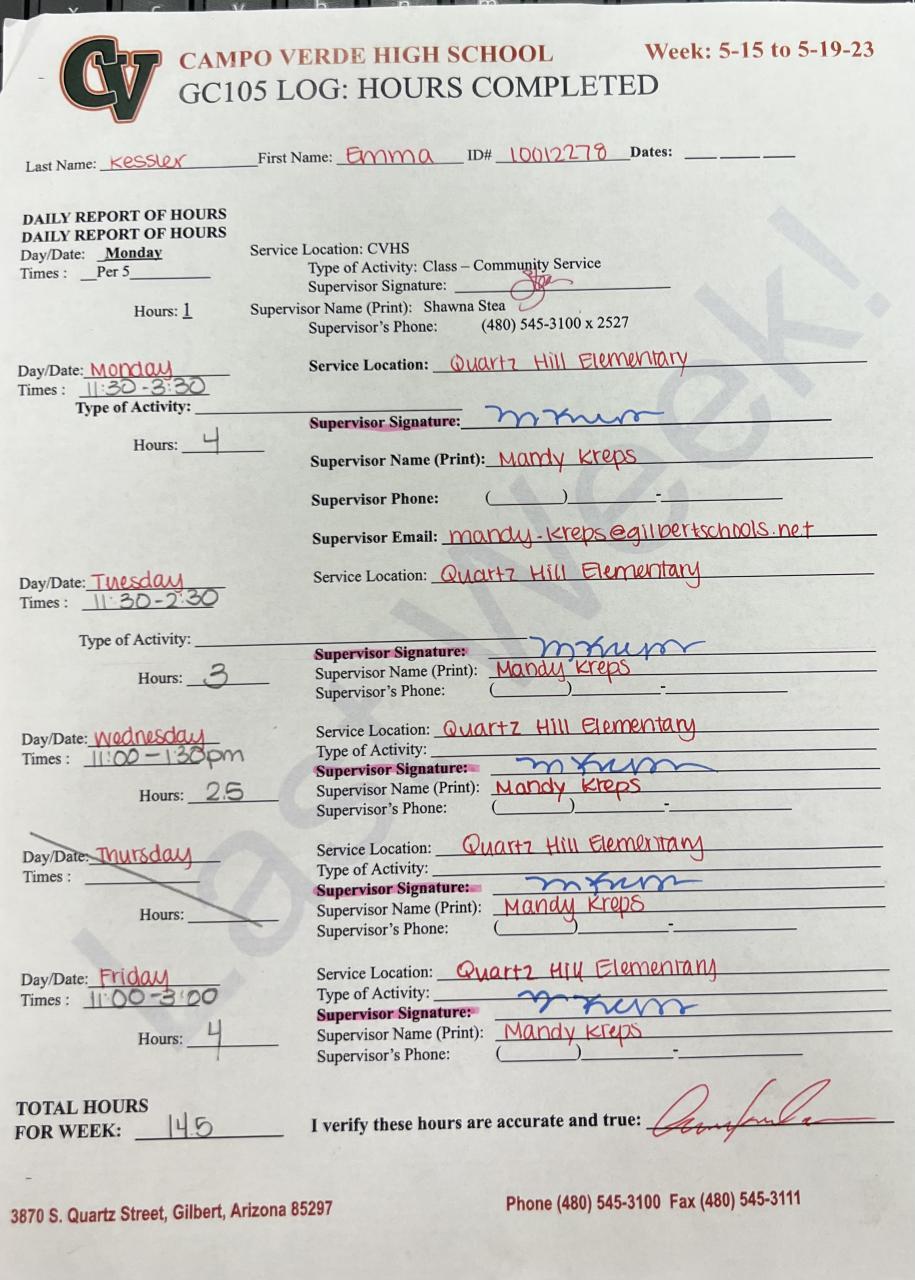 CV
CAMPO VERDE HIGH SCHOOL Week: 5-15 to 5-19-23
GC105 LOG: HOURS COMPLETED
Last Name: Kessler First Name: Emma ID# 10012278 Dates: ____ ____ ____
DAILY REPORT OF HOURS
DAILY REPORT OF HOURS
Day/Date: Monday Service Location: CVHS
Times : Per 5 Type of Activity: Class – Community Service
Supervisor Signature:
Hours: 1 Supervisor Name (Print): Shawna Stea
Supervisor's Phone: (480) 545-3100 x 2527
Day/Date: Monday Service Location: Quartz Hill Elementary
Times : 11:30-3:30
Type of Activity:
Supervisor Signature:
Hours: 4
Supervisor Name (Print): Mandy Kreps
Supervisor Phone: ( ) -
Supervisor Email: mandy.kreps@gilbertschools.net
Day/Date: Tuesday Service Location: Quartz Hill Elementary
Times : 11:30-2:30
Type of Activity:
Supervisor Signature:
Hours: 3 Supervisor Name (Print): Mandy Kreps
Supervisor's Phone: ( ) -
Day/Date: Wednesday Service Location: Quartz Hill Elementary
Times : 11:00-1:30pm Type of Activity:
Supervisor Signature:
Hours: 2.5 Supervisor Name (Print): Mandy Kreps
Supervisor's Phone: ( ) -
Day/Date: Thursday Service Location: Quartz Hill Elementary
Times : Type of Activity:
Supervisor Signature:
Hours: Supervisor Name (Print): Mandy Kreps
Supervisor's Phone: ( ) -
Day/Date: Friday Service Location: Quartz Hill Elementary
Times : 11:00-3:00 Type of Activity:
Supervisor Signature:
Hours: 4 Supervisor Name (Print): Mandy Kreps
Supervisor's Phone: ( ) -
TOTAL HOURS
FOR WEEK: 14.5 I verify these hours are accurate and true:
3870 S. Quartz Street, Gilbert, Arizona 85297 Phone (480) 545-3100 Fax (480) 545-3111
Last Week!